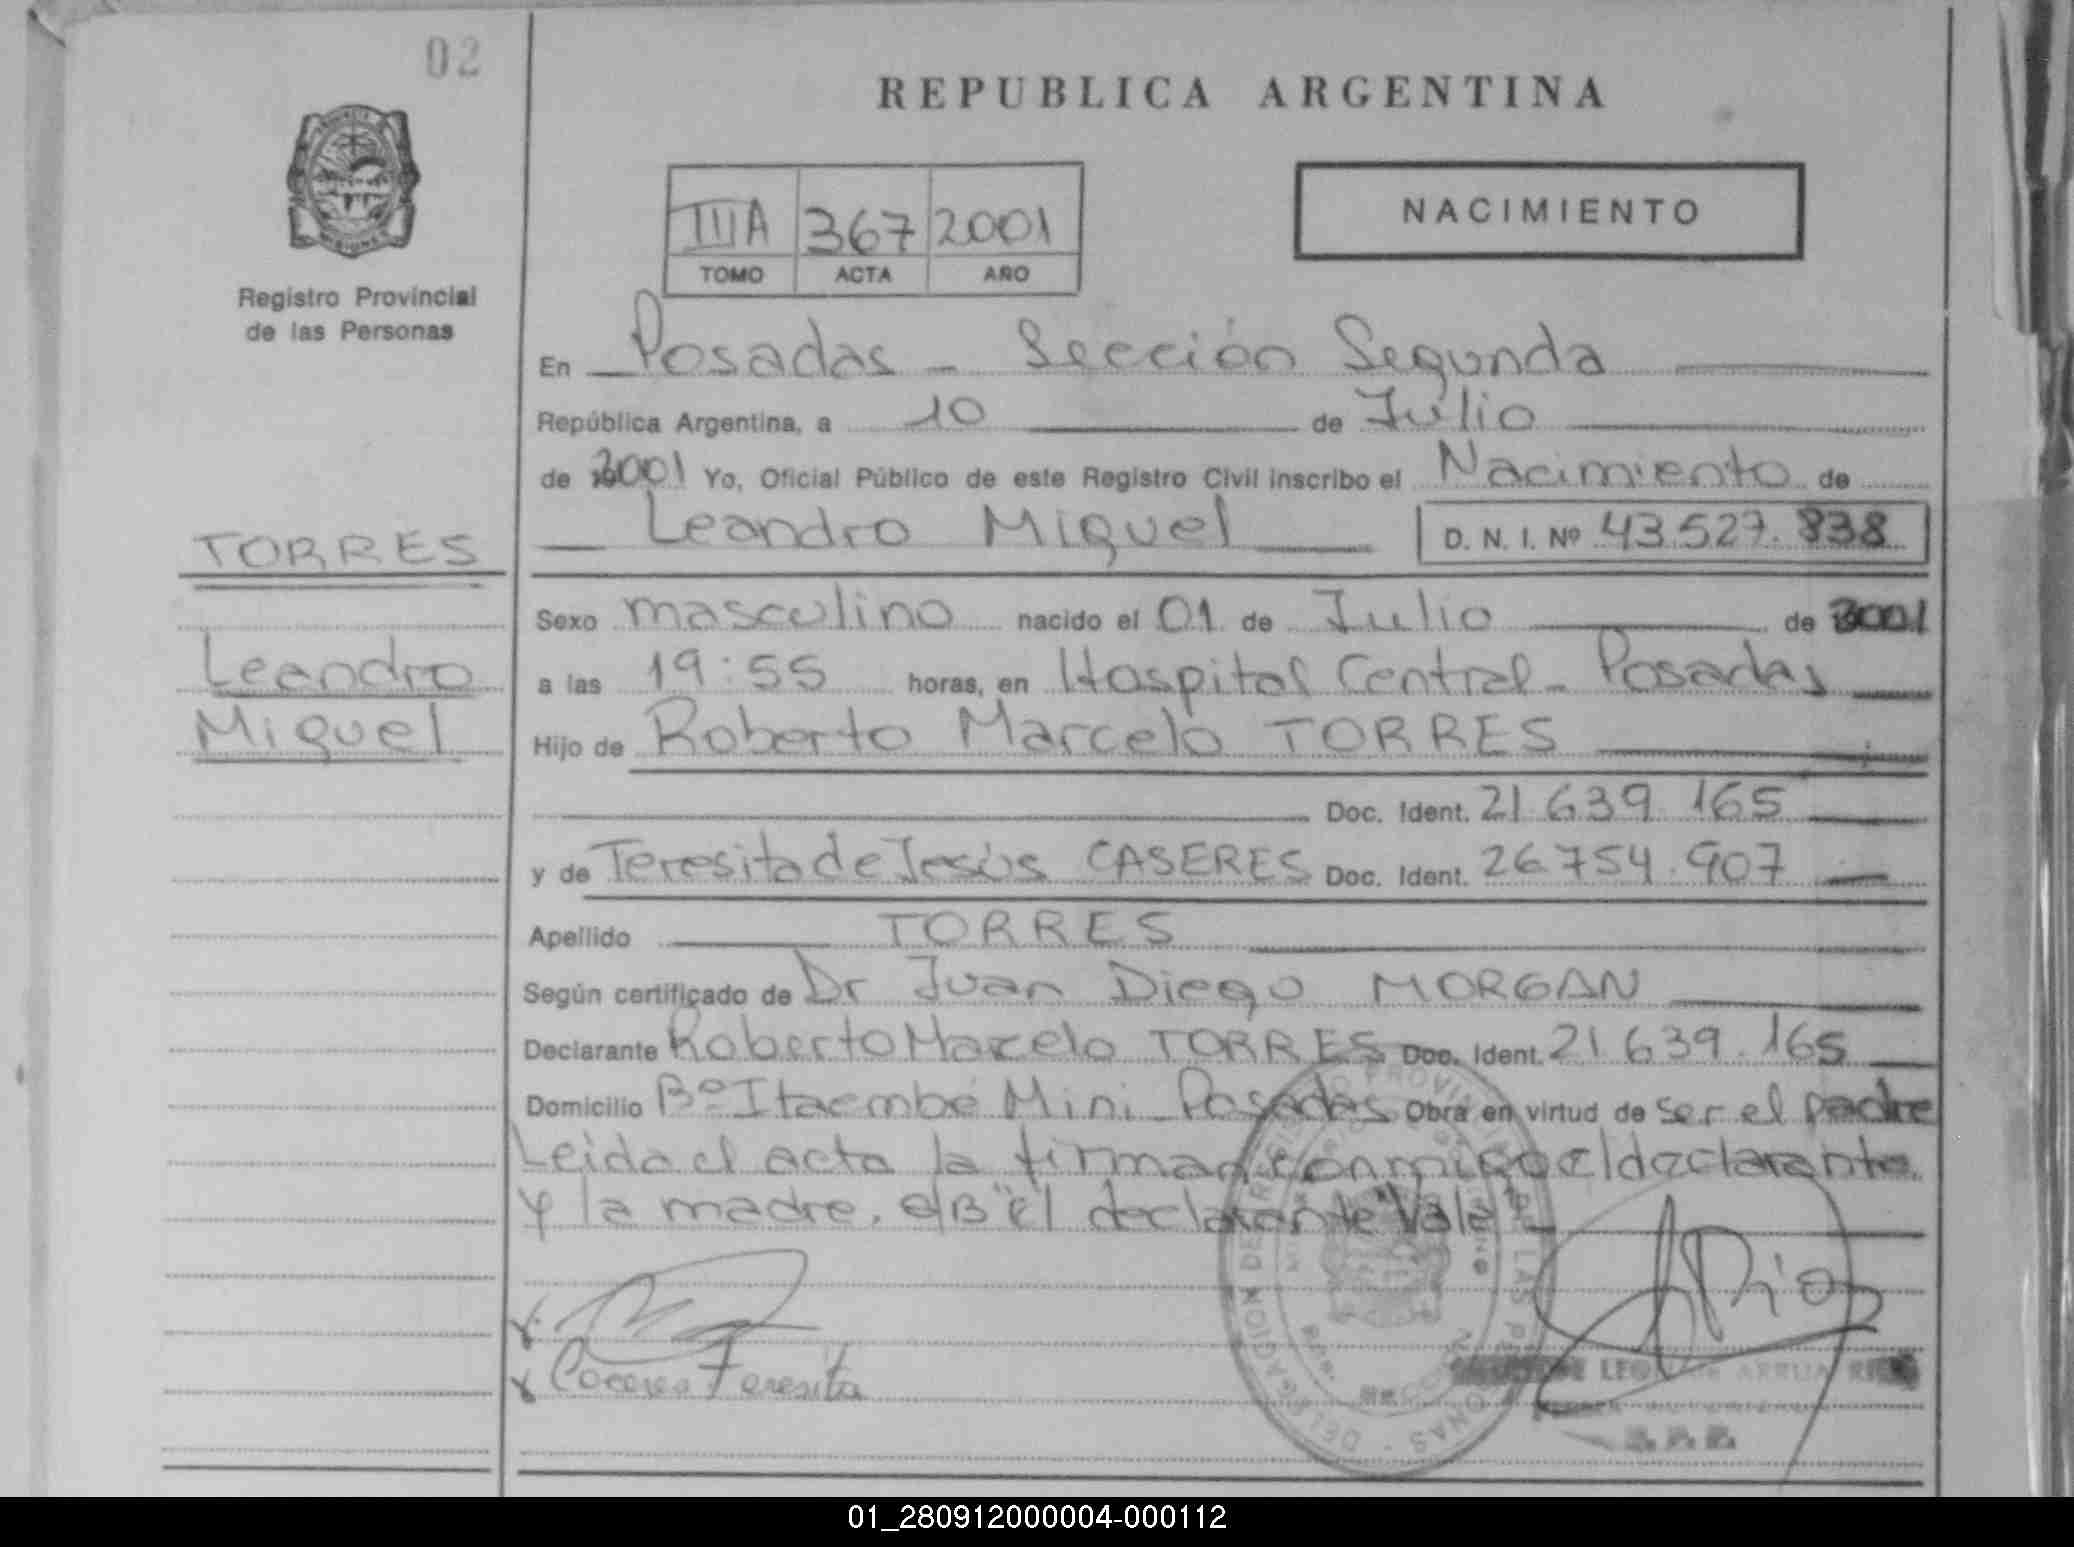 02
REPUBLICA ARGENTINA
NACIMIENTO
IIIA 367 2001
TOMO ACTA AÑO
Registro Provincial
de las Personas
En Posadas - Sección Segunda
República Argentina, a 10 de Julio
de 2001 Yo, Oficial Público de este Registro Civil inscribo el Nacimiento de
Leandro Miguel D. N. I. Nº 43.527.838
TORRES
Leandro
Miguel
Sexo masculino nacido el 01 de Julio de 2001
a las 19:55 horas, en Hospital Central - Posadas
Hijo de Roberto Marcelo TORRES
Doc. Ident. 21.639.165
y de Teresita de Jesús CASERES Doc. Ident. 26.754.907
Apellido TORRES
Según certificado de Dr Juan Diego MORGAN
Declarante Roberto Marcelo TORRES Doc. Ident. 21.639.165
Domicilio Bº Itaembé Mini Posadas Obra en virtud de ser el padre
Leida el acta la firman conmigo el declarante
y la madre. e/B "el declarante" Vale
Teresita
DELEGACION DE REGISTRO PROVINCIAL DE LAS PERSONAS
ARRUA
01_280912000004-000112